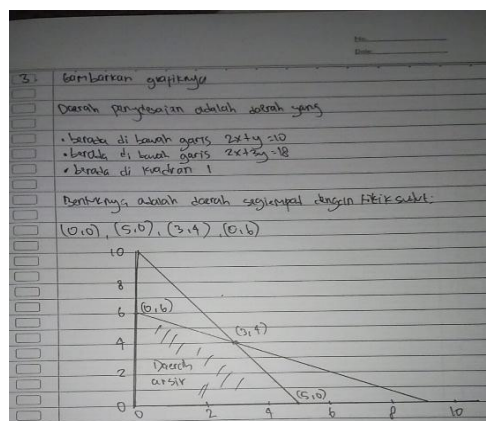 No:
Date:
3. Gambarkan grafiknya
Daerah penyelesaian adalah daerah yang
• berada di bawah garis 2x+y=10
• berada di bawah garis 2x+3y=18
• berada di kuadran 1
Bentuknya adalah daerah segiempat dengan titik sudut:
(0,0), (5,0), (3,4), (0,6)
10
8
6 (0,6)
(3,4)
4
Daerah
2 arsir
(5,0)
0
0 2 4 6 8 10